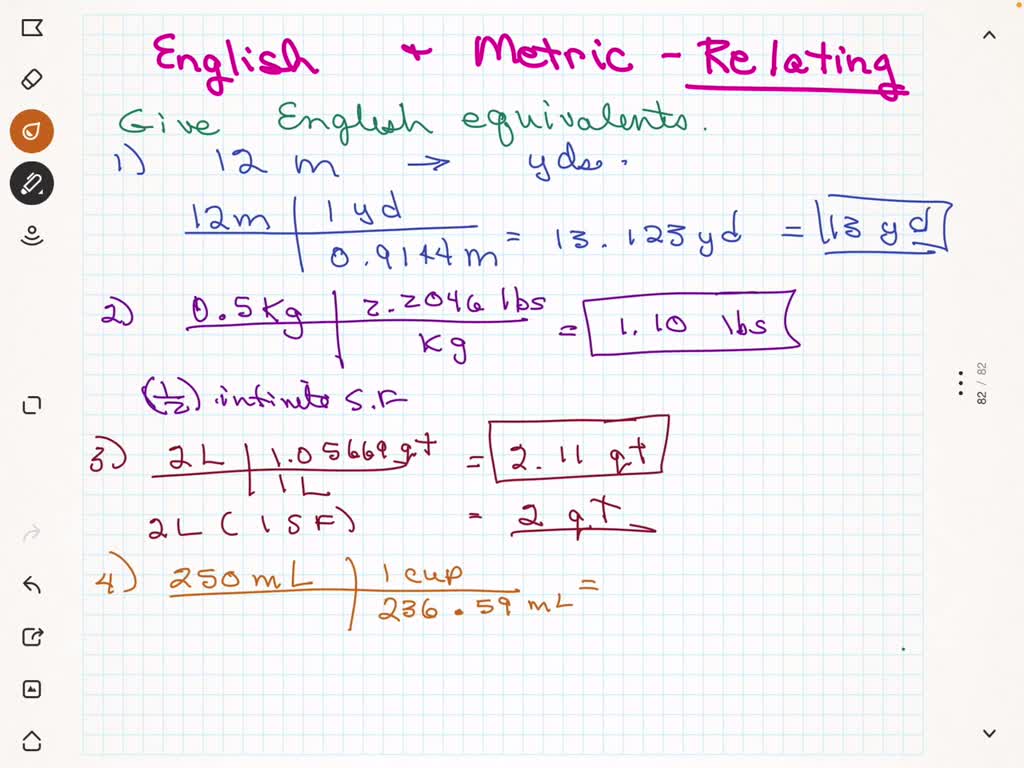 English + Metric - Relating
Give English equivalents.
1) 12 m → yds.
12m | 1 yd
0.9144 m = 13.123 yd = 13 yd
2) 0.5 Kg | 2.2046 lbs
Kg = 1.10 lbs
(1/2) infinite S.F
3) 2L | 1.05669 qt = 2.11 qt
1 L
2L ( 1 SF) = 2 qt
4) 250 mL | 1 cup =
236.59 mL
82 / 82